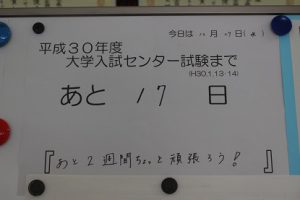 今日は 12 月 27 日(水)
平成30年度
大学入試センター試験まで
(H30.1.13・14)
あと 17 日
『あと2週間ちょっと頑張ろう!』